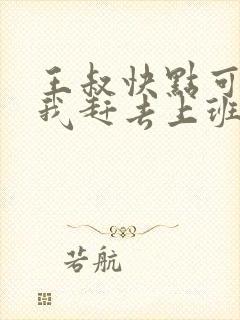 王叔快點可
我赶去上班
若航